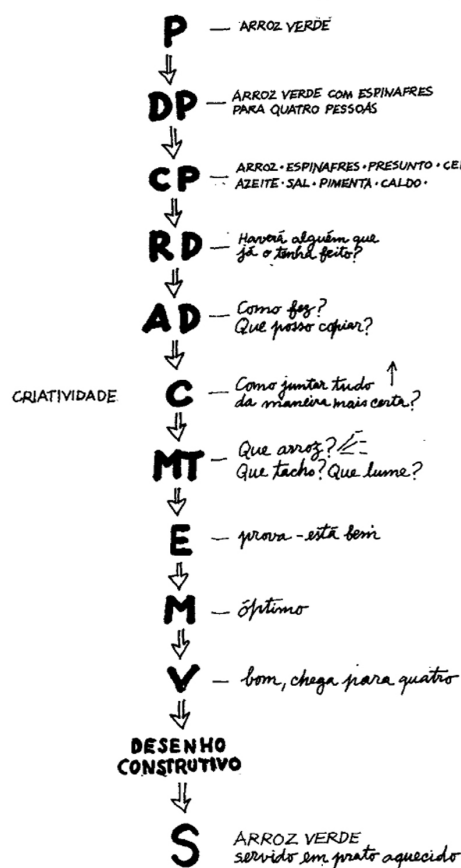 P — ARROZ VERDE
DP — ARROZ VERDE COM ESPINAFRES
PARA QUATRO PESSOAS
CP — ARROZ · ESPINAFRES · PRESUNTO ·
AZEITE · SAL · PIMENTA · CALDO ·
RD — Haverá alguém que
já o tenha feito?
AD — Como fez?
Que posso copiar?
CRIATIVIDADE C — Como juntar tudo
da maneira mais certa?
MT — Que arroz?
Que tacho? Que lume?
E — prova – está bem
M — óptimo
V — bom, chega para quatro
DESENHO
CONSTRUTIVO
S ARROZ VERDE
servido em prato aquecido